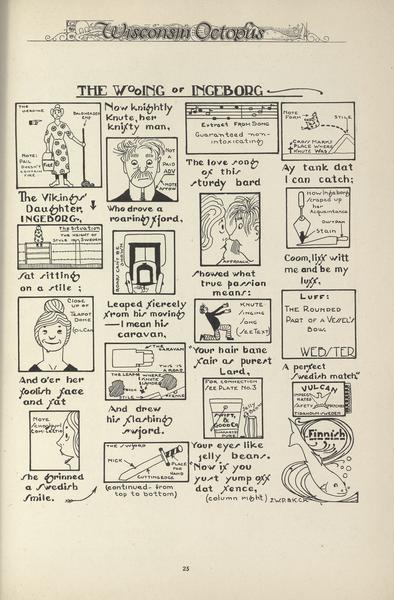 Wisconsin Octopus
THE WOOING OF INGEBORG
THE
HEROINE
BALDHEADED
END
NOTE:
PAIL
DOESN'T
CONTAIN
FIRE
FIRE
The Vikings
Daughter,
INGEBORG,
The Situation
THE HEIGHT OF
STYLE IN SWEDEN
Sat sitting
on a stile;
CLOSE
UP OF
TEAPOT
DOME
And o'er her
foolish face
and fat
NOTE
She grinned
a Swedish
smile.
Now knightly
Knute, her
knifty man,
NOT
A
PAID
ADV
NOTE
ARROW
Who drove a
roaring fjord,
Leaped fiercely
from his moving
—I mean his
caravan,
THE CARAVAN
THIS IS
A ROAD
THE LEAP
WHERE
KNUTE
LANDED
STICK
STILE
FENCE
And drew
his flashing
sword.
THE SWORD
NICK
CUTTING EDGE
PLACE
FOR
HAND
(continued- from
top to bottom)
Extract From Song
Guaranteed non-
intoxicating
The love song
of this
sturdy bard
Showed what
true passion
means:
KNUTE
SINGING
SONG
(SEE TEXT)
"Your hair bane
fair as purest
Lard,
FOR CONNECTION
SEE PLATE NO. 3
SWIFT
&
GOOD CO
PURE
Jelly
Your eyes like
jelly beans.
"Now if you
yust yump off
dat fence,
(column right)
NOTE
FORM
STILE
CROSS MARKS
PLACE WHERE
KNUTE WAS
Ay tank dat
I can catch;
How Ingeborg
scraped up
her
Acquaintance
DUTPAN
Stain
Coom, lif witt
me and be my
luff,
LUFF:
THE ROUNDED
PART OF A VESSEL'S
BOW.
WEBSTER
A perfect
Swedish match"
VULCAN
SAFETY
TIDAHOLM SWEDEN
Finnish
25